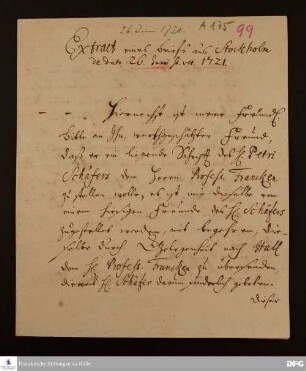 26. Juni 1721.
A 175
99
Extract eines briefs aus Stockholm
de dato 26. Junii st. vet. 1721.
Hiernechst ist meine freundl.
bitte an Ihn, werthgeschätzter Freund,
daß er ein liegende Schrifft des H. Petri
Schäfers dem Herrn Profess. Francken
zu stellen wolle, es ist mir dieselbe von
einem hiesigen Freunde des H. Schäfers
zugestellet worden, mit begehren, die-
selbe durch Gelegenheit nach Hall
den H. Profess. Francken zu übersenden,
dieweil H. Schäfer darum gebeten.
Dieser
Franckesche Stiftungen zu Halle
DFG